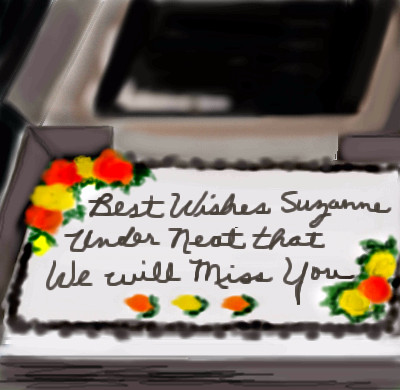 Best Wishes Suzanne
Under Neat that
We will Miss You